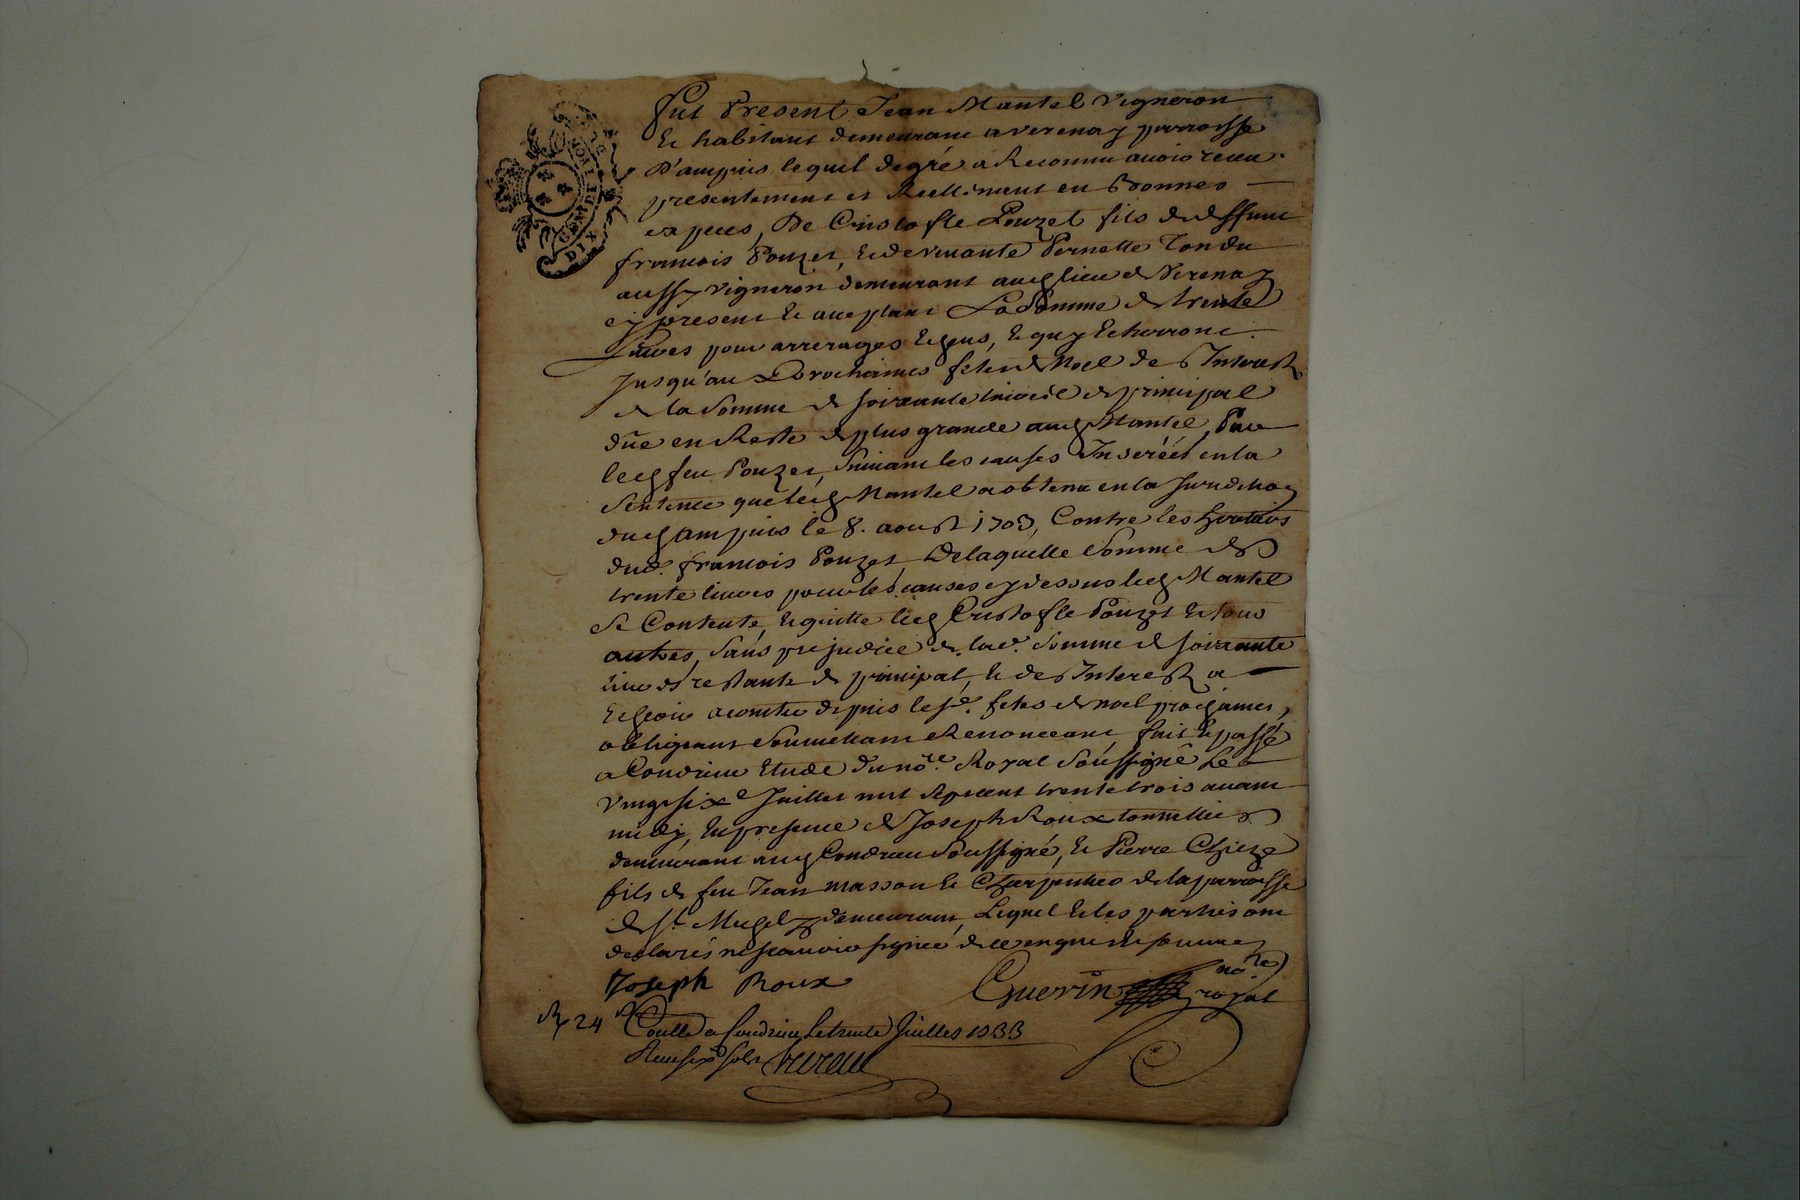 GEN. DE LION
DIX DEN
Fut Present Jean Mantel Vigneron
Et habitant demeurant a verenay parroisse
D'ampuis lequel de gré a Reconnu avoir receu
presentement et Reellement en bonnes
especes, De Cristofle Pouzet fils de deffunt
francois Pouzet, Et de vivante Pernette Tondu
aussy vigneron demeurant aud lieu de Verenay
cy present Et aceptant La Somme de trente
Livres pour arrerages Echus, Et quy Echerront
Jusqu'aux prochaines fetes de Noel des Interest
de la Somme de soixante livres de principal
düe en Reste de plus grande aud Mantel, Par
led feu Pouzet, Suivant les causes Inserées en la
Sentence que led Mantel a obtenu en la Jurisdiction
dud ampuis le 8. aoust 1703, Contre les heritiers
dud. francois Pouzet, De laquelle Somme de
trente livres pour les causes cy dessus led Mantel
Se Contente, Et quitte led Cristofle Pouzet Et tous
autres, Sans prejudice de lad. Somme de soixante
livres restante de principal, Et des Interest a
Echeoir a comter depuis lesd. fetes de noel prochaines,
obligeant Soumettant Renonceant, fait Et passé
a Condrieu Etude du nore. Royal Soussigné Le
Vingt sixe Juillet mil Sept cent trente trois avant
midy, En presence de Joseph Roux tonnellier
demeurant aud Condrieu Soussigné, Et Pierre
fils de feu Jean masson Et Charpentier de la parroisse
de St. demeurant, Lequel Et les parties ont
declarés ne scavoir signer de ce enquis Et somme
Joseph Roux
Guerin nore royal
24
Conllé a Condrieu le trente Juillet 1733
Receu six sols